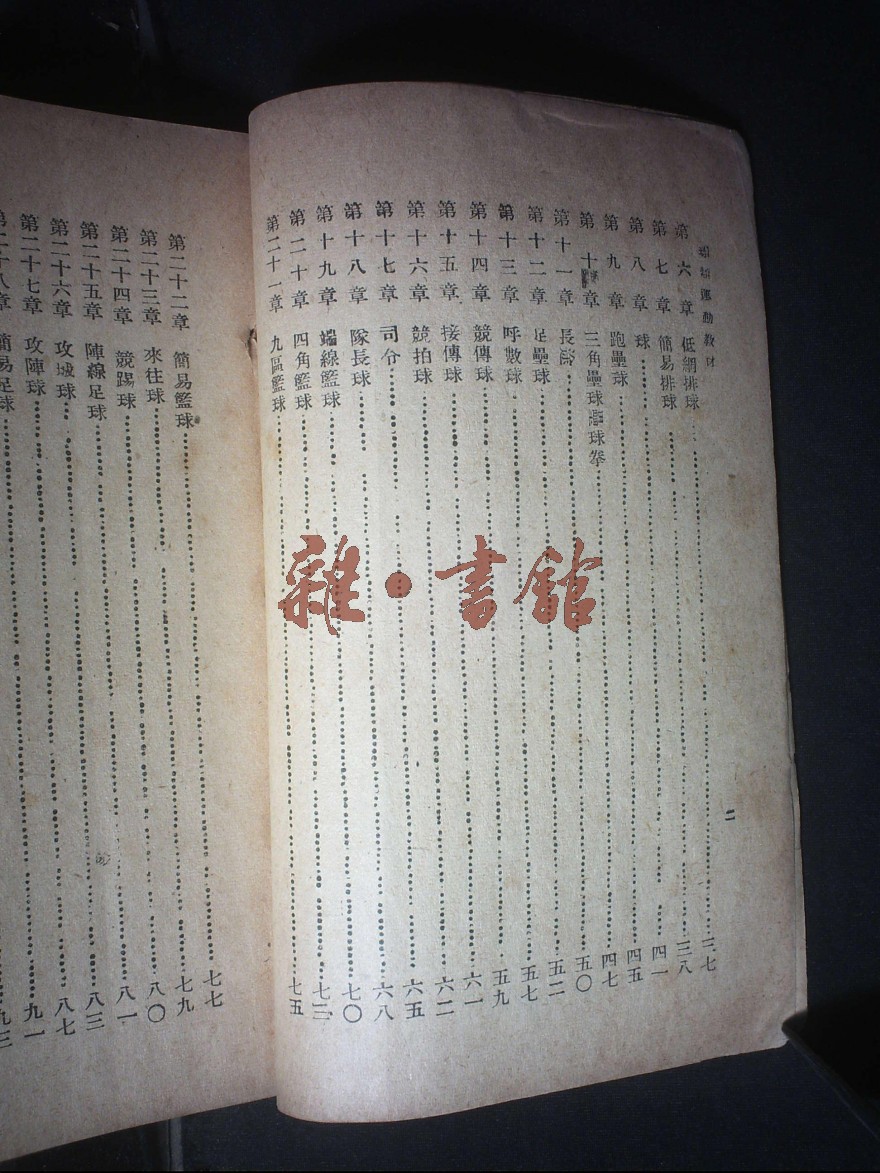 運動教材
二
第六章 低網排球……三七
第七章 簡易排球……三八
第八章 球……四一
第九章 跑壘球……四五
第十章 三角壘球 球……四七
第十一章 長……五〇
第十二章 足壘球……五二
第十三章 呼數球……五七
第十四章 競傳球……五九
第十五章 接傳球……六一
第十六章 競拍球……六二
第十七章 司令……六五
第十八章 隊長球……六八
第十九章 端線籃球……七〇
第二十章 四角籃球……七三
第二十一章 九區籃球……七五
第二十二章 簡易籃球……七七
第二十三章 來往球……七九
第二十四章 競踢球……八〇
第二十五章 陣線足球……八一
第二十六章 攻城球……八三
第二十七章 攻陣球……八七
第二十八章 簡易足球……九一
九三
雜·書館